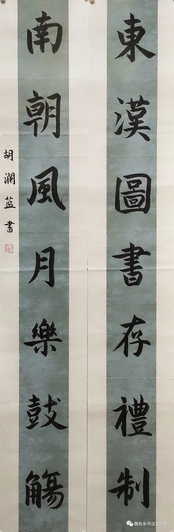 東漢圖書存禮制
南朝風月樂鼓觴
胡瀾藍書